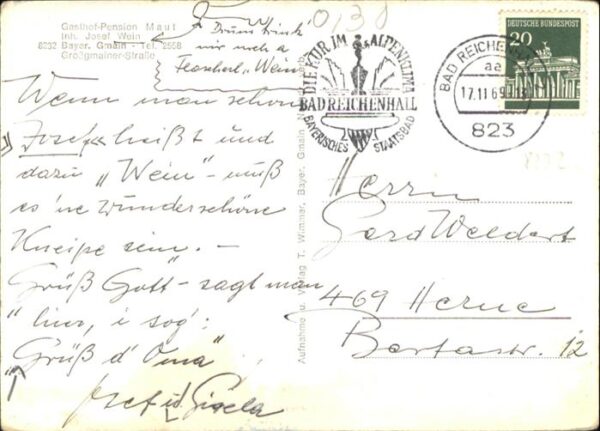 Gasthof-Pension Maut
Inh. Josef Wein
8232 Bayer. Gmain - Tel. 2558
Großgmainer-Straße
Drum trink
mir noch a
Flascherl „Wein"
Wenn man schon
Josef heißt und
dazu „Wein" – muß
es 'ne wunderschöne
Kneipe sein. –
Grüß Gott – sagt man
hier, i sog':
„Grüß d' Oma"
Josef u. Gisela
Aufnahme u. Verlag T. Wimmer, Bayer. Gmain
0,30
DIE KUR IM ALPENKLIMA
BAD REICHENHALL
BAYERISCHES STAATSBAD
BAD REICHENHALL
aa
17.11.69
823
DEUTSCHE BUNDESPOST
20
Herrn
Gerd Weldert
469 Herne
Bertastr. 12